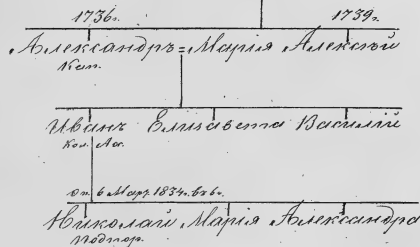 1736г. 1739г.
Александръ = Марія Алексѣй
Кап.
Иванъ Елисавета Василій
Кол. Ас.
6 Мар. 1834г.
Николай Марія Александра
Подпор.